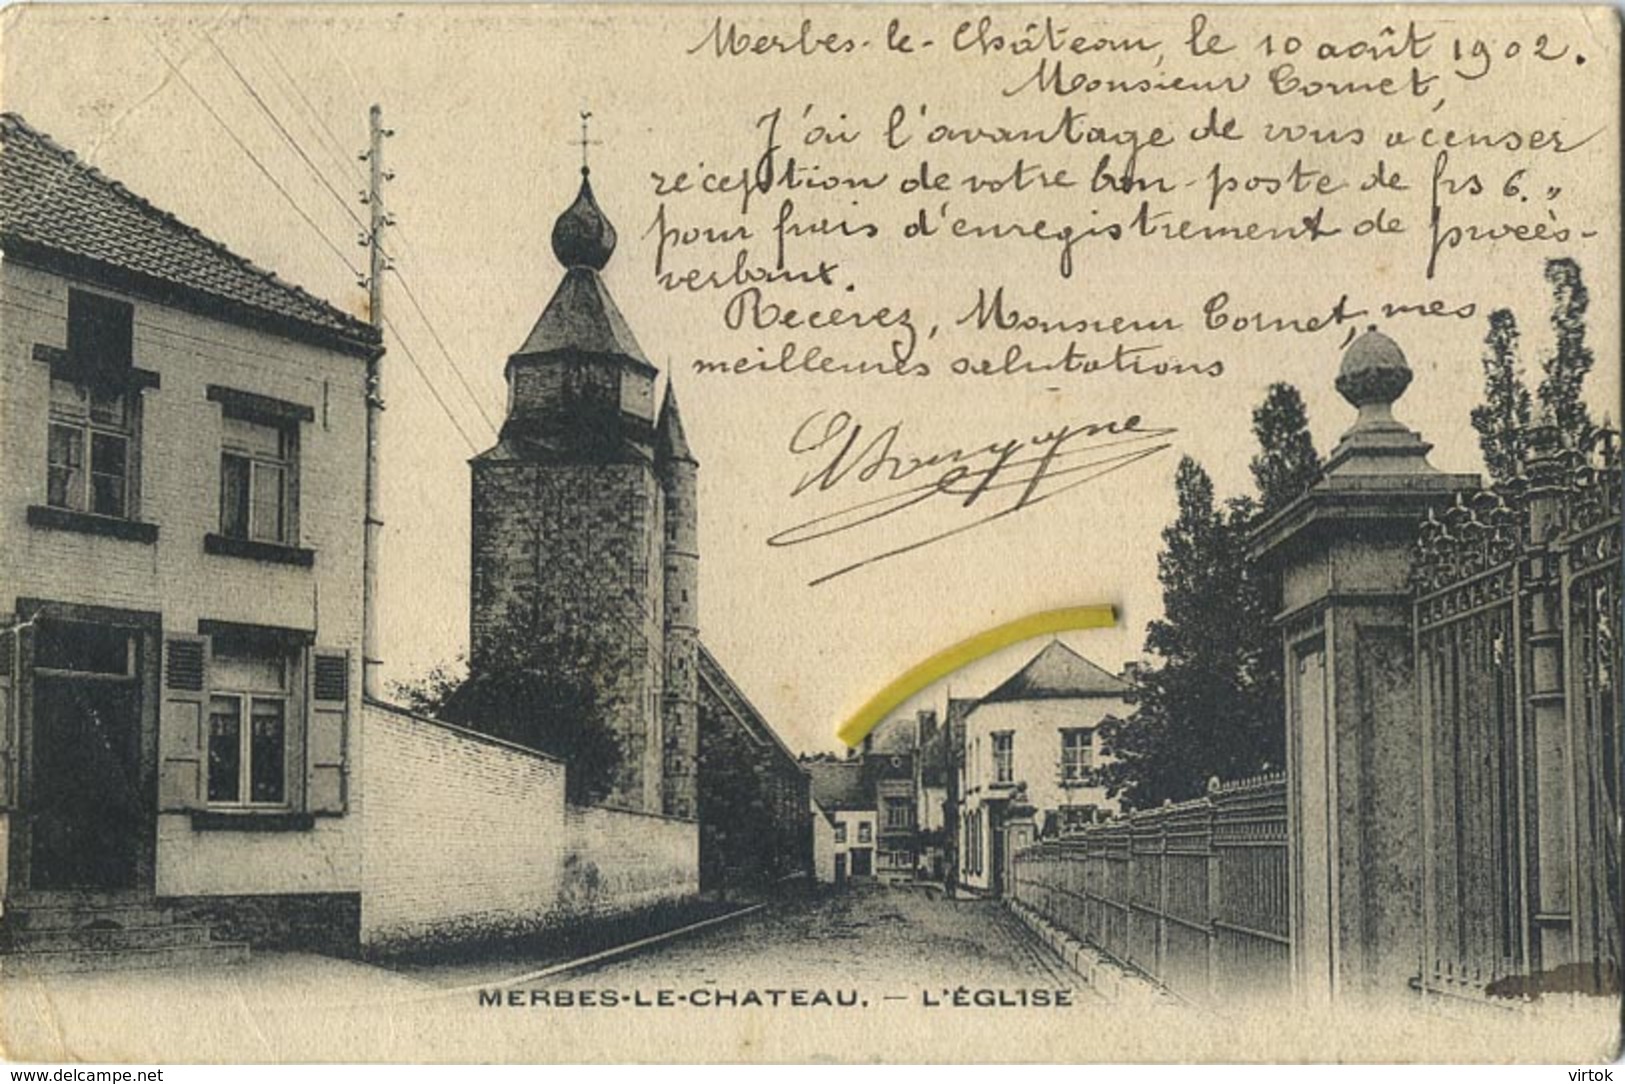 Merbes-le-Château, le 10 août 1902.
Monsieur Cornet,
J'ai l'avantage de vous accuser
réception de votre bon-poste de frs 6. "
pour frais d'enregistrement de procès-
verbaux.
Recevez, Monsieur Cornet, mes
meilleures salutations
MERBES-LE-CHATEAU. — L'ÉGLISE
www.delcampe.net
virtok